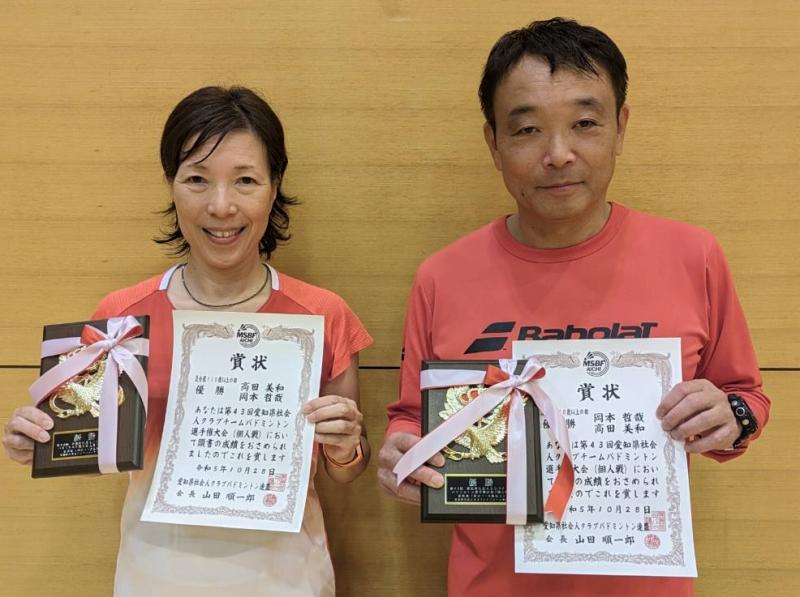 MSBF
AICHI
賞状
優勝 高田 美和
岡本 哲哉
あなたは第43回愛知県社会
人クラブチームバドミントン
選手権大会(個人戦)におい
て頭書の成績をおさめられ
ましたのでこれを賞します
令和5年10月28日
愛知県社会人クラブバドミントン連盟
会長 山田 順一郎
優勝
Babolat
MSBF
AICHI
賞状
優 岡本 哲哉
高田 美和
あなたは第43回愛知県社会
クラブチームバドミントン
選手権大会(個人戦)におい
頭書の成績をおさめられ
したのでこれを賞します
和5年10月28日
愛知県社会人クラブバドミントン連盟
会長 山田 順一郎
優勝